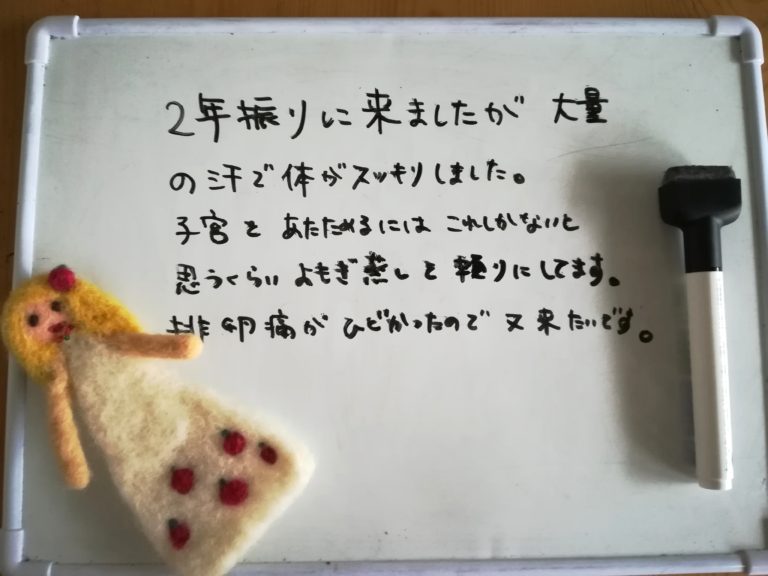 2年振りに来ましたが 大量
の汗で体がスッキリしました。
子宮をあたためるには これしかないと
思うくらい よもぎ蒸しを頼りにしてます。
排卵痛が ひどかったので 又来たいです。